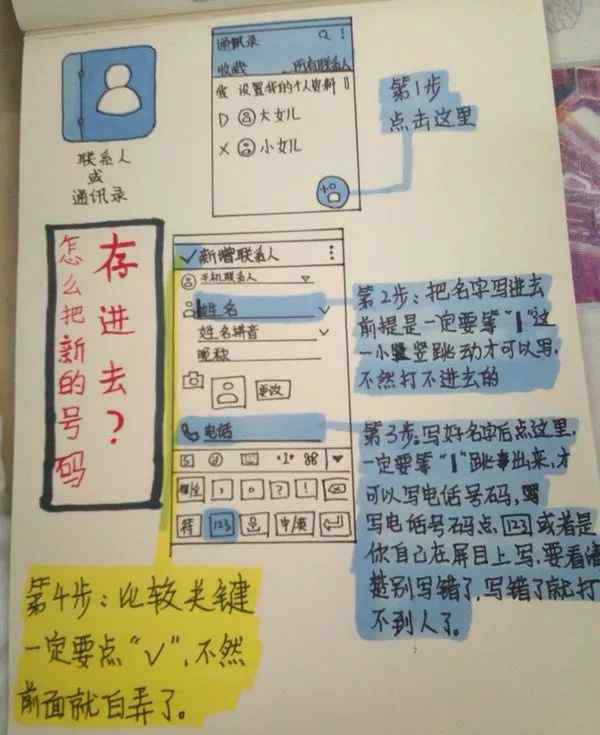 联系人
或
通讯录
通讯录
收藏 所有联系人
设置我的个人资料
D 大女儿
X 小女儿
第1步
点击这里
怎么把新的号码
存进去?
✓新增联系人
手机联系人
姓名
姓名拼音
昵称
更改
电话
, 。 ? !
符 123 中/英
第2步:把名字写进去
前提是一定要等“|”这
一小竖竖跳动才可以写,
不然打不进去的
第3步:写好名字后点这里,
一定要等“|”跳出来,才
可以写电话号码,
写电话号码点 123 或者是
你自己在屏目上写,要看清
楚别写错了,写错了就打
不到人了。
第4步:比较关键
一定要点“✓”,不然
前面就白弄了。